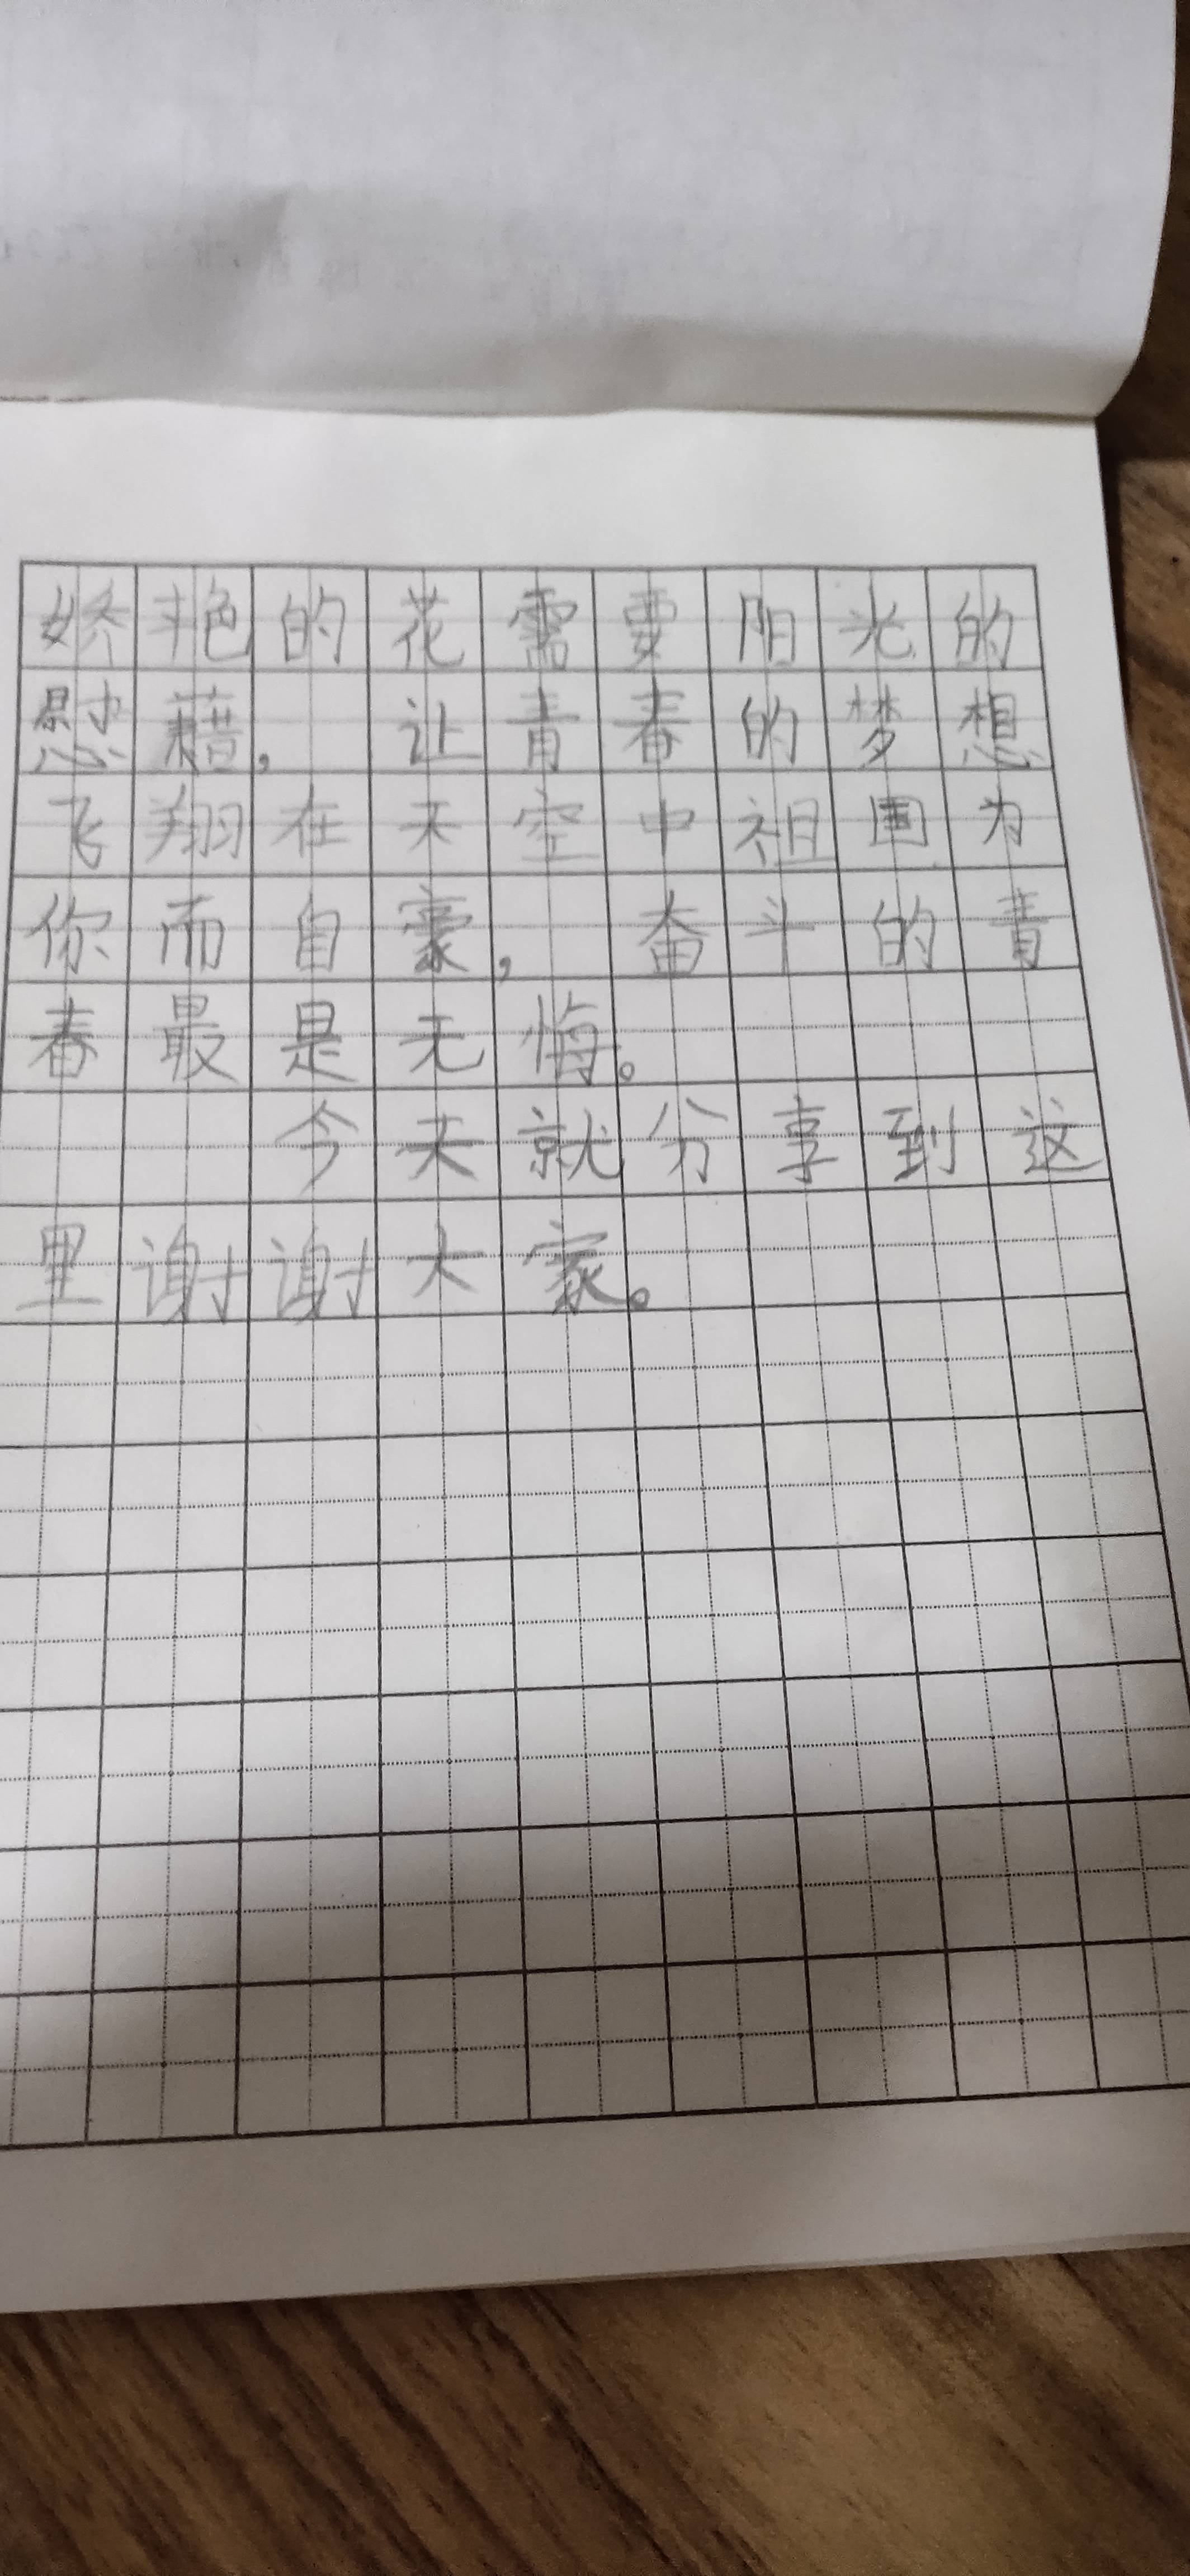 娇艳的花需要阳光的
慰藉，让青春的梦想
飞翔在天空中祖国为
你而自豪，奋斗的青
春最是无悔。
今天就分享到这
里谢谢大家。